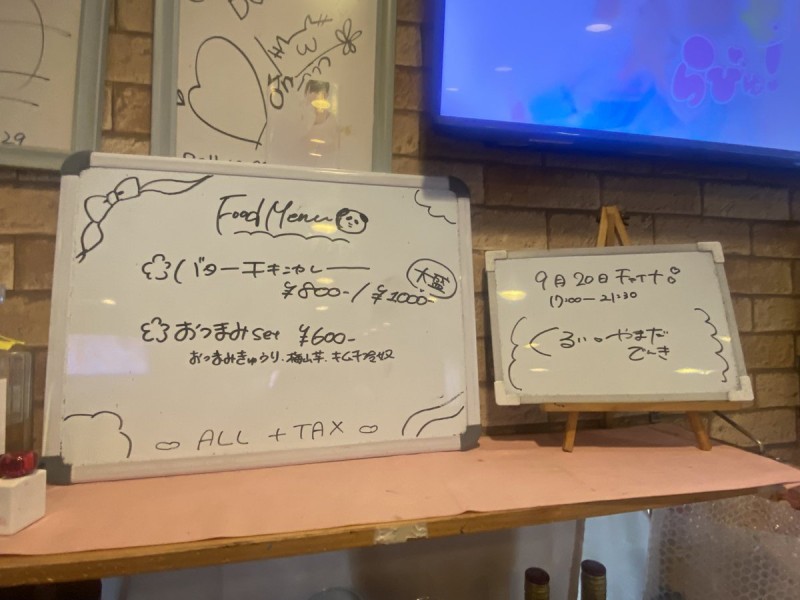 29
Food Menu
バターチキンカレー
大盛
¥800-/¥1000-
おつまみset ¥600-
おつまみきゅうり、梅山芋、キムチ冷奴
ALL + TAX
らびっ!
9月20日 チャイナ
17:00-21:30
くるぃ。やまだ
でんき